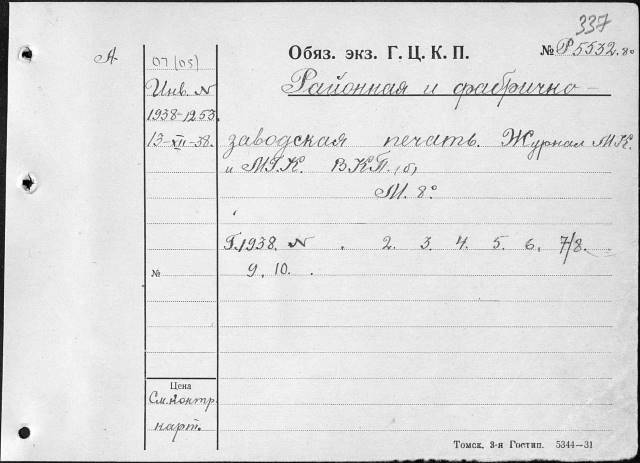 337
А
07 (05)
Обяз. экз. Г. Ц. К. П.
№ Р5532. 8°
Инв. N
1938-1253
13-XII-38.
Районная и фабрично-
заводская печать. Журнал МК.
и МГК. ВКП.(б)
М. 8°
Г.1938. N . 2. 3. 4. 5. 6. 7/8.
№
9, 10. .
Цена
См. контр.
карт.
Томск. 3-я Гостип. 5344—31